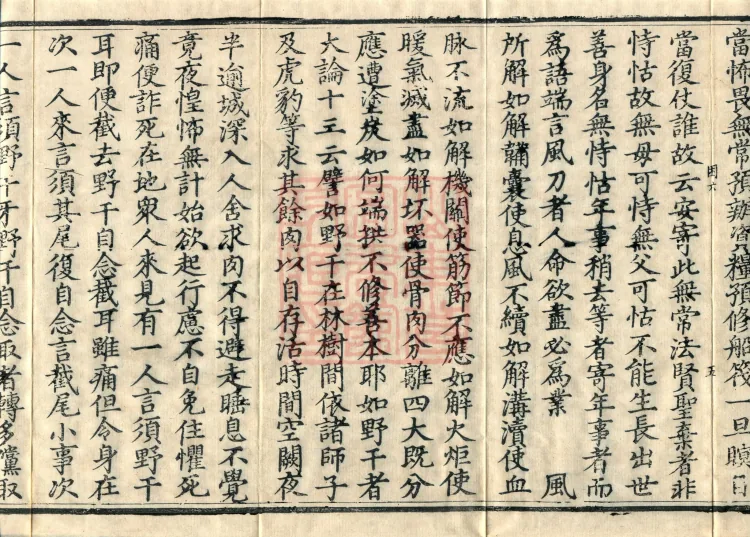 當怖畏無常預辦資糧預修船筏一旦瞑目
當復仗誰故云安寄此無常法賢聖棄者非
恃怙故無母可恃無父可怙不能生長出世
善身名無恃怙年事稍去等者寄年事者而
爲語端言風刀者人命欲盡必爲業風
所解如解韛囊使息風不續如解溝瀆使血
脉不流如解機關使筋節不應如解火炬使
暖氣滅盡如解坏器使骨肉分離四大既分
應遭塗炭如何端拱不修善本耶如野干者
大論十三云譬如野干在林樹間依諸師子
及虎豹等求其餘肉以自存活時間空闕夜
半逾城深入人舍求肉不得避走睡息不覺
竟夜惶怖無計始欲起行慮不自免住懼死
痛便詐死在地衆人來見有一人言須野干
耳即便截去野干自念截耳雖痛但令身在
次一人來言須其尾復自念言截尾小事次
一人言須野干牙野干自念取者轉多黨取